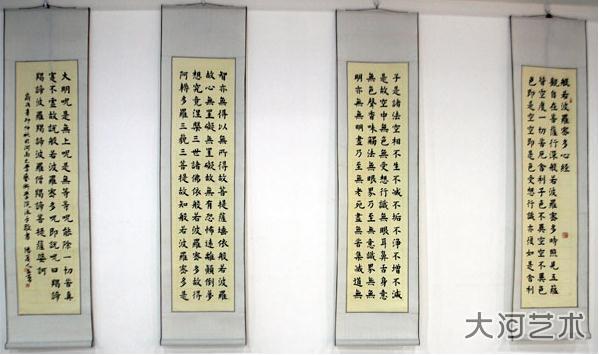 般若波羅蜜多心經
觀自在菩薩行深般若波羅蜜多時照見五蘊
皆空度一切苦厄舍利子色不異空空不異色
色即是空空即是色受想行識亦復如是舍利
子是諸法空相不生不滅不垢不淨不增不減
是故空中無色無受想行識無眼耳鼻舌身意
無色聲香味觸法無眼界乃至無意識界無無
明亦無無明盡乃至無老死盡無苦集滅道無
智亦無得以無所得故菩提薩埵依般若波羅
故心無罣礙無罣礙故無有恐怖遠離顛倒夢
想究竟涅槃三世諸佛依般若波羅蜜多故得
阿耨多羅三藐三菩提故知般若波羅蜜多是
大明呪是無上呪是無等等呪能除一切苦真
實不虛故說般若波羅蜜多呪即說呪曰揭諦
揭諦波羅揭諦波羅僧揭諦菩提薩婆訶
大河艺术